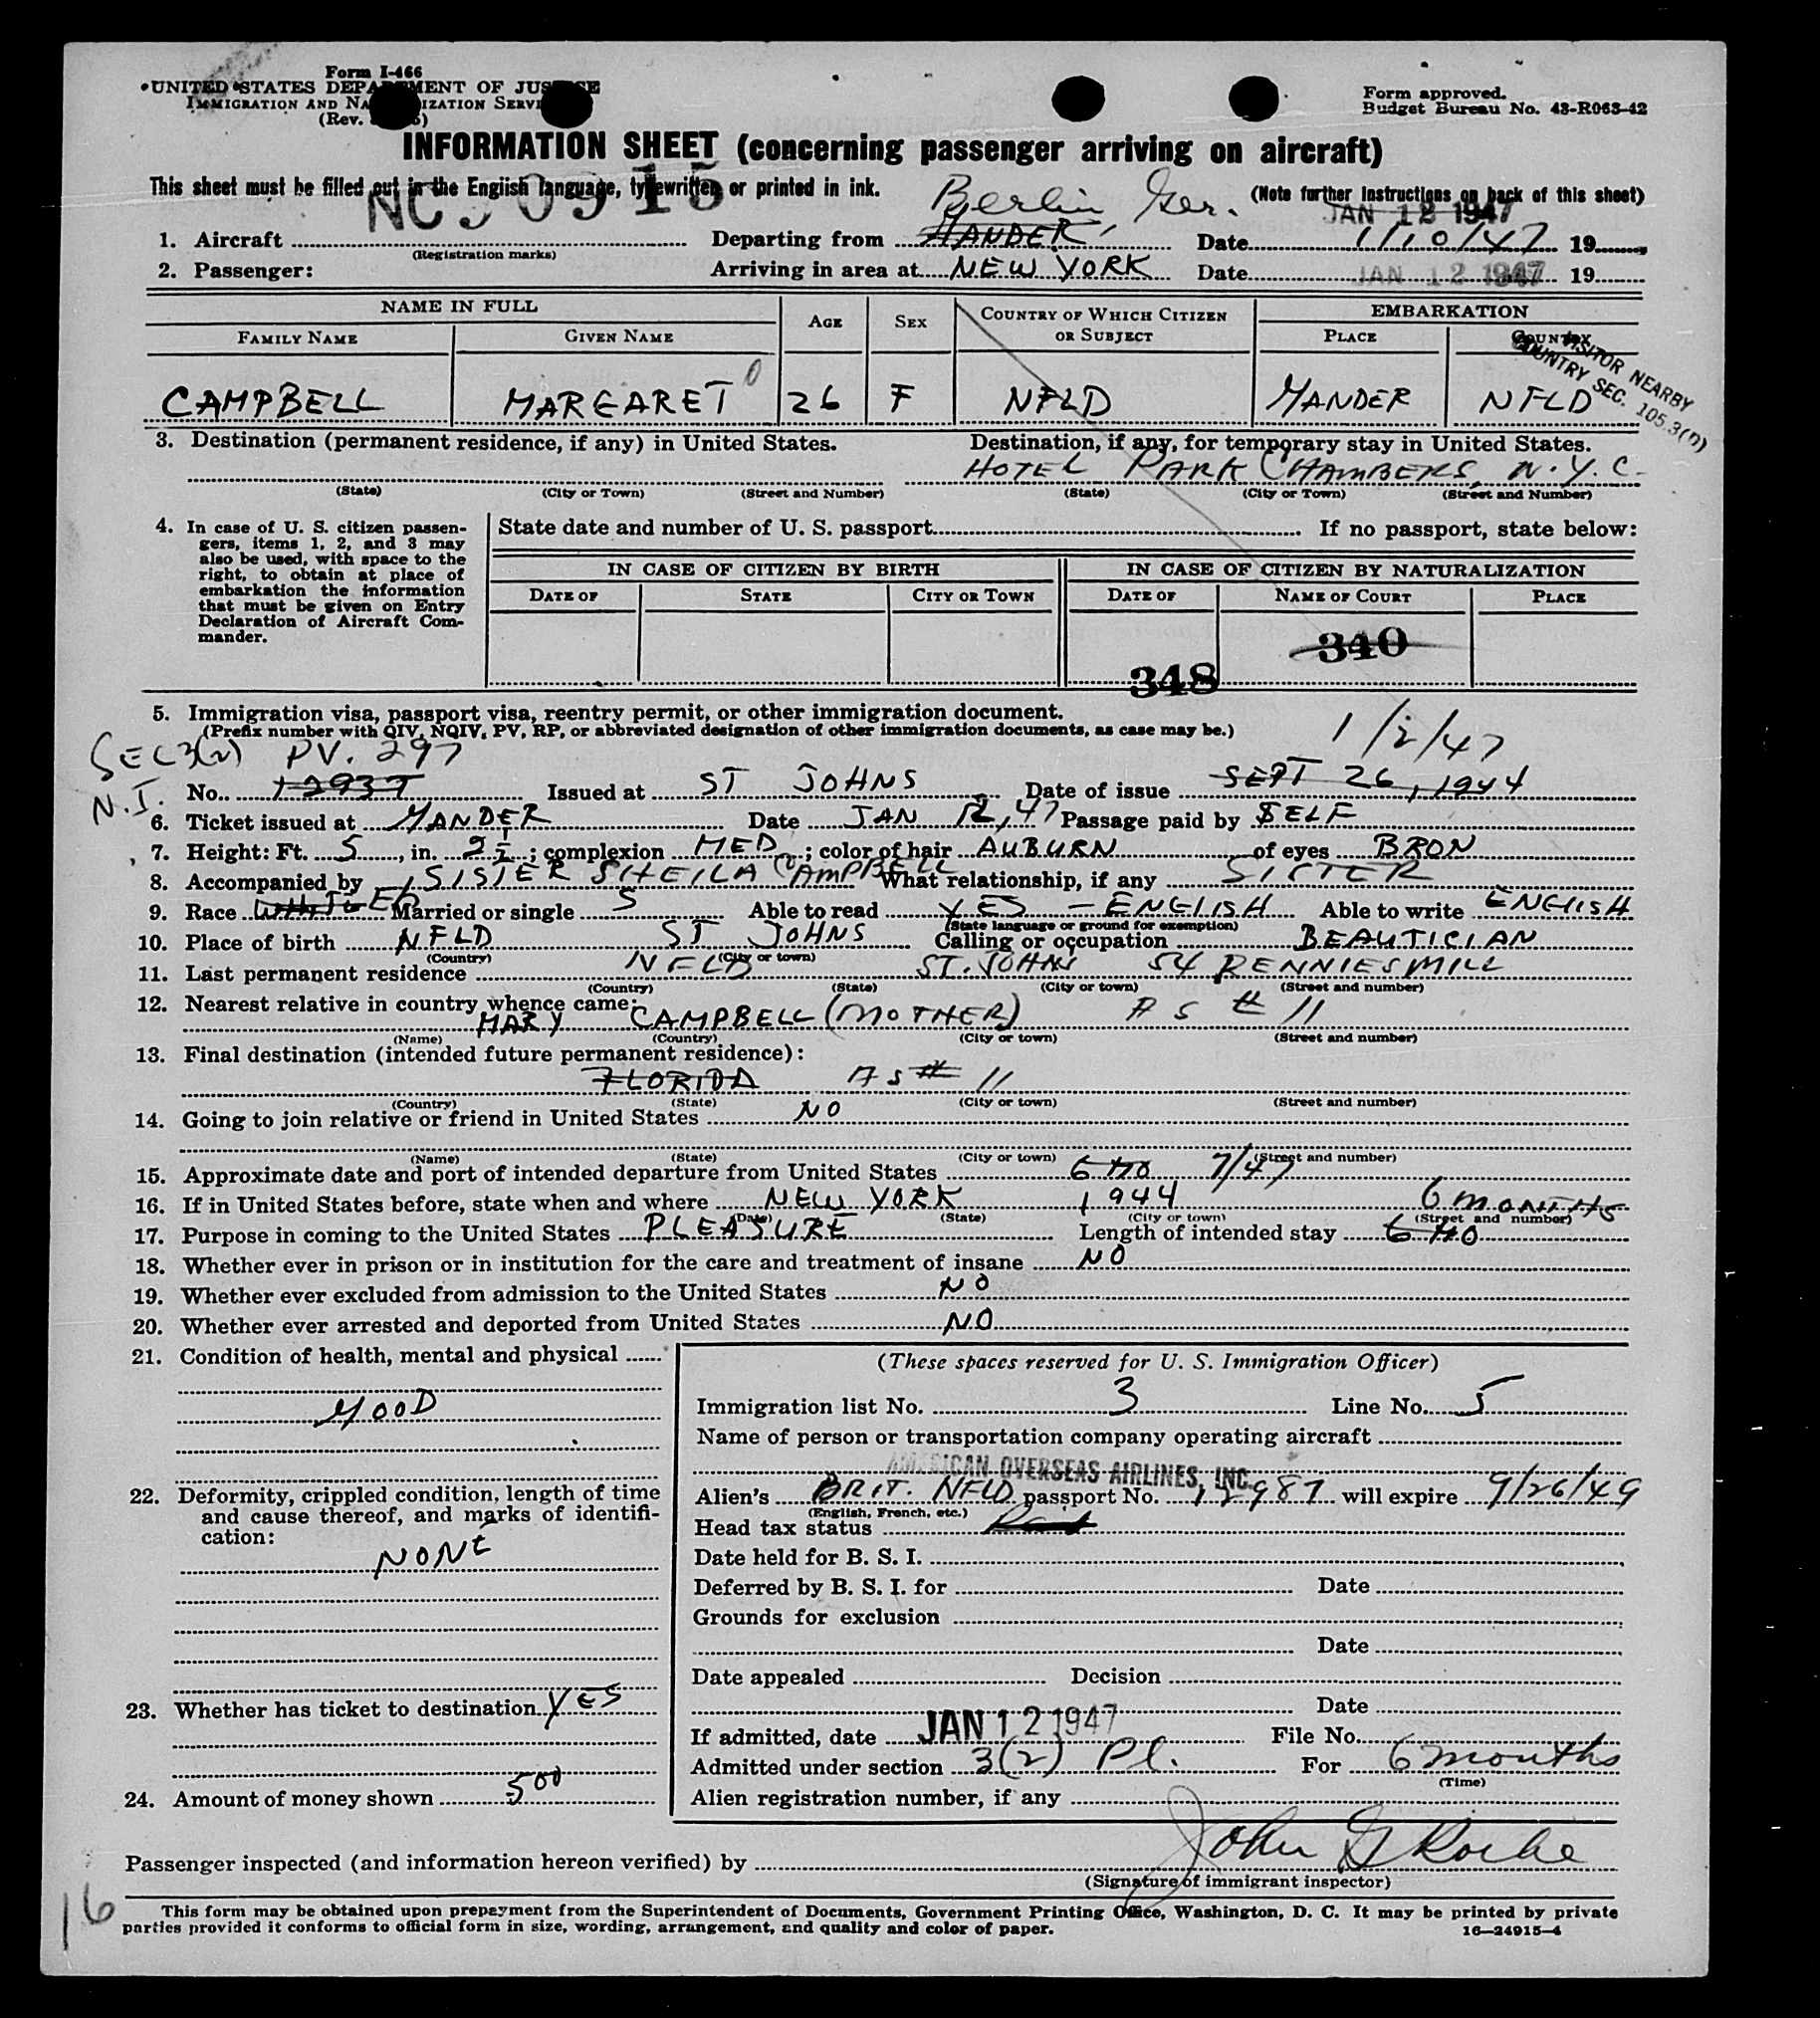 Form I-466
UNITED STATES DEPARTMENT OF JUSTICE
IMMIGRATION AND NATURALIZATION SERVICE
(Rev.
Form approved.
Budget Bureau No. 43-R063-42
INFORMATION SHEET (concerning passenger arriving on aircraft)
This sheet must be filled out in the English language, typewritten or printed in ink.
(Note further instructions on back of this sheet)
NC 90915
Berlin Ger.
JAN 12 1947
1. Aircraft (Registration marks) Departing from GANDER, Date 1/10/47 19
2. Passenger: Arriving in area at NEW YORK Date JAN 12 1947 19
NAME IN FULL AGE SEX COUNTRY OF WHICH CITIZEN OR SUBJECT EMBARKATION
FAMILY NAME GIVEN NAME PLACE COUNTRY
VISITOR NEARBY
COUNTRY SEC. 105.3(n)
CAMPBELL MARGARET 0 26 F NFLD GANDER NFLD
3. Destination (permanent residence, if any) in United States. Destination, if any, for temporary stay in United States.
HOTEL PARK CHAMBERS, N.Y.C.
(State) (City or Town) (Street and Number) (State) (City or Town) (Street and Number)
4. In case of U. S. citizen passengers, items 1, 2, and 3 may also be used, with space to the right, to obtain at place of embarkation the information that must be given on Entry Declaration of Aircraft Commander.
State date and number of U. S. passport If no passport, state below:
IN CASE OF CITIZEN BY BIRTH IN CASE OF CITIZEN BY NATURALIZATION
DATE OF STATE CITY OR TOWN DATE OF NAME OF COURT PLACE
340
348
5. Immigration visa, passport visa, reentry permit, or other immigration document.
(Prefix number with QIV, NQIV, PV, RP, or abbreviated designation of other immigration documents, as case may be.)
SEC 3(2) PV. 297 1/2/47
N.I. No. 12937 Issued at ST JOHNS Date of issue SEPT 26, 1944
6. Ticket issued at GANDER Date JAN 12, 47 Passage paid by SELF
7. Height: Ft. 5, in. 2½; complexion MED; color of hair AUBURN of eyes BRON
8. Accompanied by SISTER SHEILA CAMPBELL What relationship, if any SISTER
9. Race Married or single S Able to read YES - ENGLISH Able to write ENGLISH
(State language or ground for exemption)
10. Place of birth NFLD ST JOHNS Calling or occupation BEAUTICIAN
(Country) (City or town)
11. Last permanent residence NFLD ST. JOHNS 54 RENNIESMILL
(Country) (State) (City or town) (Street and number)
12. Nearest relative in country whence came:
MARY CAMPBELL (MOTHER) AS # 11
(Name) (Country) (City or town) (Street and number)
13. Final destination (intended future permanent residence):
FLORIDA AS # 11
(Country) (State) (City or town) (Street and number)
14. Going to join relative or friend in United States NO
(Name) (State) (City or town) (Street and number)
15. Approximate date and port of intended departure from United States 6 MO 7/47
16. If in United States before, state when and where NEW YORK 1944 6 MONTHS
(Date) (State) (City or town) (Street and number)
17. Purpose in coming to the United States PLEASURE Length of intended stay 6 MO
18. Whether ever in prison or in institution for the care and treatment of insane NO
19. Whether ever excluded from admission to the United States NO
20. Whether ever arrested and deported from United States NO
21. Condition of health, mental and physical
GOOD
22. Deformity, crippled condition, length of time and cause thereof, and marks of identification:
NONE
23. Whether has ticket to destination YES
24. Amount of money shown 500
(These spaces reserved for U. S. Immigration Officer)
Immigration list No. 3 Line No. 5
Name of person or transportation company operating aircraft
AMERICAN OVERSEAS AIRLINES, INC.
Alien's BRIT. NFLD passport No. 12987 will expire 9/26/49
(English, French, etc.)
Head tax status
Date held for B. S. I.
Deferred by B. S. I. for Date
Grounds for exclusion
Date
Date appealed Decision
Date
If admitted, date JAN 12 1947 File No.
Admitted under section 3(2) Pl. For 6 months
(Time)
Alien registration number, if any
Passenger inspected (and information hereon verified) by John G Roche
(Signature of immigrant inspector)
16
This form may be obtained upon prepayment from the Superintendent of Documents, Government Printing Office, Washington, D. C. It may be printed by private
parties provided it conforms to official form in size, wording, arrangement, and quality and color of paper.
16—24915-4